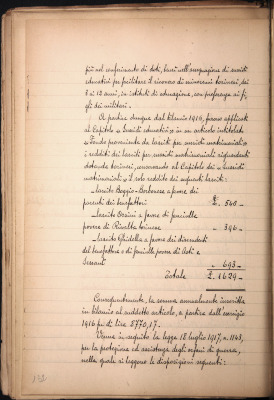 più nel conferimento di doti, bensì nell'assegnazione di sussidi
educativi per facilitare il ricovero di minorenni torinesi, dai
3 ai 12 anni, in istituti di educazione, con preferenza ai fi-
gli dei militari.
A partire dunque dal bilancio 1916, furono applicati
al Capitolo "Sussidi educativi" in un articolo intitolato
"Fondo proveniente da lasciti per sussidi matrimoniali"
i redditi dei lasciti per sussidi matrimoniali riguardanti
donande torinesi, conservando al Capitolo dei "sussidi
matrimoniali" il solo reddito dei seguenti lasciti:
- lascito Baggio-Borbonese a favore dei
parenti dei benefattori £. 540 -
- lascito Orsini a favore di fanciulle
povere di Rivalta torinese " 396 -
- lascito Ghidella a favore dei discendenti
del benefattore o di fanciulle povere di Asti e
" 693 -
Totale £. 1629 -
Conseguentemente, la somma annualmente inscritta
in bilancio al suddetto articolo, a partire dall'esercizio
1916 fu di lire 2770,17.
Venne in seguito la legge 18 luglio 1917, n. 1143,
per la protezione ed assistenza degli orfani di guerra,
nella quale si leggono le disposizioni seguenti:
132